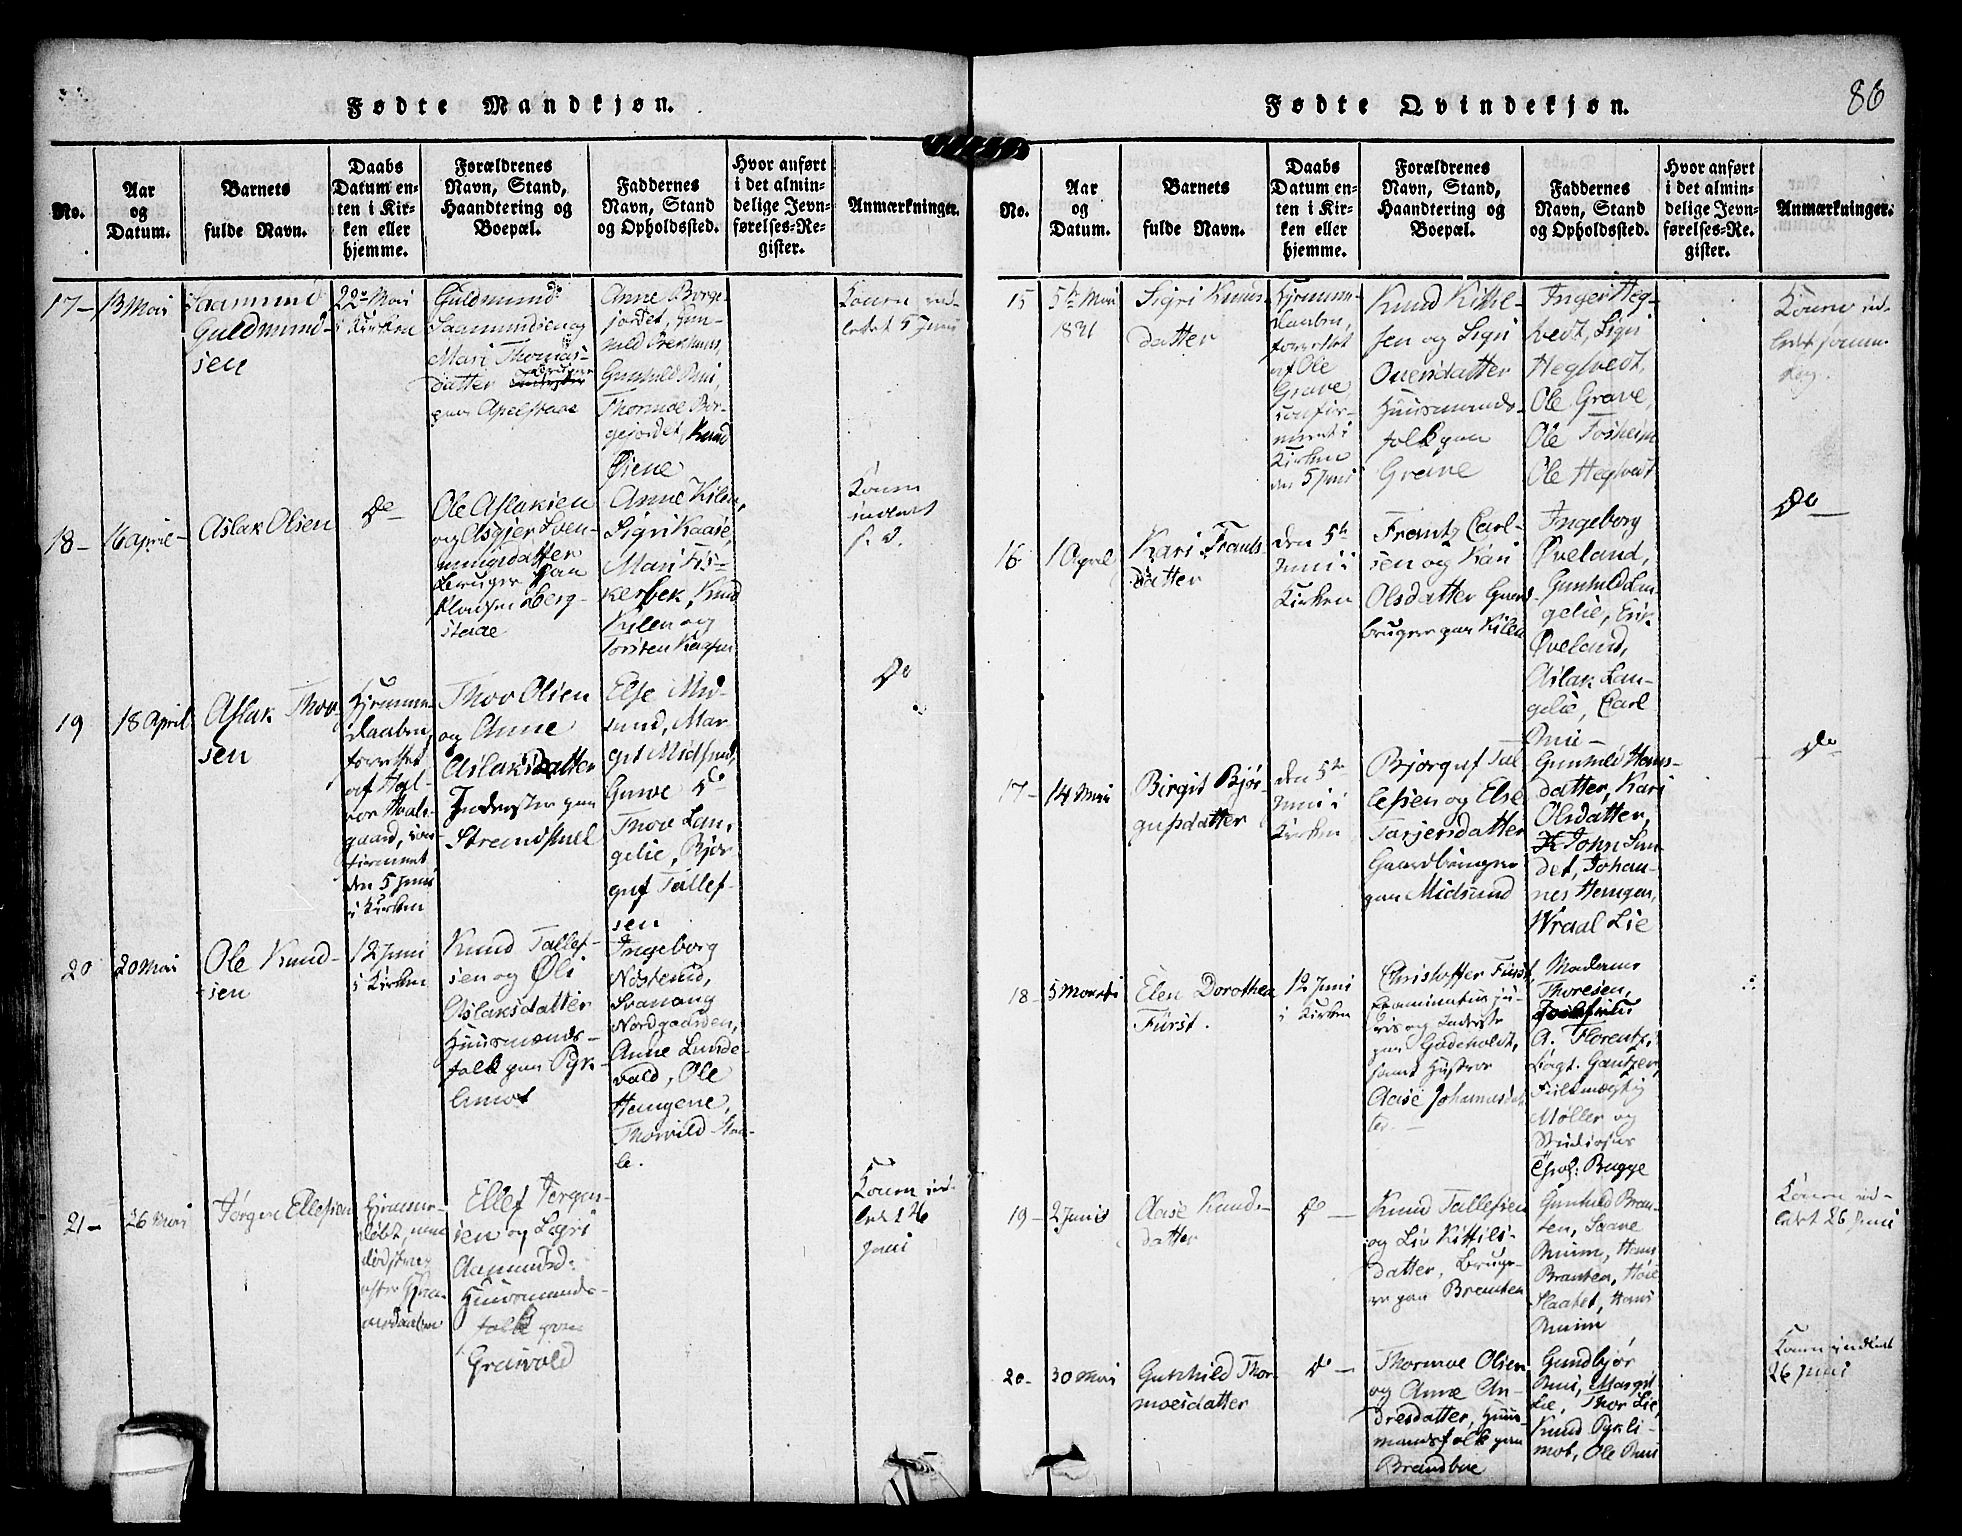 Fødte Mandkjøn.
No.
Aar
og
Datum.
Barnets
fulde Navn.
Daabs
Datum en-
ten i Kir-
ken eller
hjemme.
Forældrenes
Navn, Stand,
Haandtering og
Boepæl.
Faddernes
Navn, Stand
og Opholdssted.
Hvor anført
i det almin-
delige Jevn-
førelses-Re-
gister.
Anmærkninger.
17-
13 Mai
Saamund
Guldmund-
sen
22de Mai
i Kirken
Guldmund
Saamundsen og
Mari Thomas-
datter
paa Apelstaae
Anne Borge-
jordet, Gun-
hild
Gunhild Rui,
Thormoe Bor-
gejordet, Knud
Øiene
Konen ind-
ledet 5 Juni
18-
16 April-
Aslak Olsen
Do
Ole Aslaksen
og Asgjer Sven-
nungsdatter
Bruger paa
Berg-
staae
Anne Kilen,
Sigri Kaase,
Mari Fis-
kerbek, Knud
Kilen og
Torsten
Konen
indledet
s. D.
19
18 April
Aslak Thov-
sen
Hjemme-
daaben,
forrettet
af Hal-
vor
gaard, con-
firmeret
den 5 Juni
i Kirken
Thov Olsen
og Anne
Aslaksdatter
Inderster paa
Strandstull
Else Mid-
sund, Mar-
git Midsund,
Gunve Do
Thov Lan-
gelie, Bjør-
guf Tallef-
sen
Do
20
20 Mai
Ole Knud-
sen
12 Juni
i Kirken
Knud Tallef-
sen og Øli
Aslaksdatter
Huusmands-
folk paa Pyk-
limot
Ingeborg
Nostrud,
Svanaug
Nordgaarden,
Anne Lunde-
vald, Ole
Haugene,
Thorvild
21-
26 Mai
Jørgen Ellefsen
Hjemme-
døbt, men
død strax
efter Hjem-
medaaben
Ellef Jørgen-
sen og Sigri
Aamundsd:
Huusmands-
folk paa
Graivold
Konen ind-
ledt 26
Juni
Fødte Qvindekjøn.
86
No.
Aar
og
Datum.
Barnets
fulde Navn.
Daabs
Datum en-
ten i Kir-
ken eller
hjemme.
Forældrenes
Navn, Stand,
Haandtering og
Boepæl.
Faddernes
Navn, Stand
og Opholdssted.
Hvor anført
i det almin-
delige Jevn-
førelses-Re-
gister.
Anmærkninger.
15
5te Mai
1831
Sigri Knuds-
datter
Hjemme-
daaben,
forrettet
af Ole
Grave
confir-
meret i
Kirken
den 5 Juni
Knud Kittel-
sen og Sigri
Ouensdatter
Huusmands-
folk paa
Grave
Inger Heg-
tvedt, Sigri
Hegtvedt,
Ole Grave,
Ole Fosheim
Ole Hegtvedt
Konen ind-
ledet samme
Dag.
16
1 April
Kari Frants-
datter
den 5te
Juni i
Kirken
Frantz Carl-
sen og Kari
Olsdatter Gaard-
bruger paa Kilen
Ingeborg
Øveland,
Gunhild Lan-
gelie, Erik
Øveland,
Aslak Lan-
gelie, Carl
Rui -
Do
17-
14 Mai
Birgit Bjør-
gufsdatter
den 5te
Juni i
Kirken
Bjørguf Tal-
lefsen og Else
Tarjersdatter
Gaardbruger
paa Midsund
Gunhild Hans-
datter, Kari
Olsdatter,
John Lun-
det, Johan-
nes Haugen,
Wraal Lie
Do
18-
5 Marti
Elen Dorothea
Fürst.
12 Juni
i Kirken
Christoffer Fürst,
Examinatus ju-
ris og Inderste
paa Gudeholdt,
samt Hustroe
Aase Johannesdat-
ter.
Madame
Thoresen,
A. Florentz,
Capt. Gantzer,
Fuldmægtig
Møller og
Studiosus
Bugge
19-
2 Juni
Aase Knuds-
datter
Do -
Knud Tallefsen
og Liv Kittils-
datter, Bruge-
re paa Brauten
Gunhild Brau-
ten, Saave
Muim, Hans
Brauten,
Slaatet, Hans
Muim
Konen ind-
ledet 26 Juni
20-
30 Mai
Gunhild Thor-
moesdatter
Do -
Thormoe Olsen
og Anne An-
dresdatter, Huus-
mandsfolk paa
Brandboe
Gundbjør
Rui, Margit
Lie, Thor Lie,
Knud Pykli-
mot, Ole Rui
Konen indledet
26 Juni